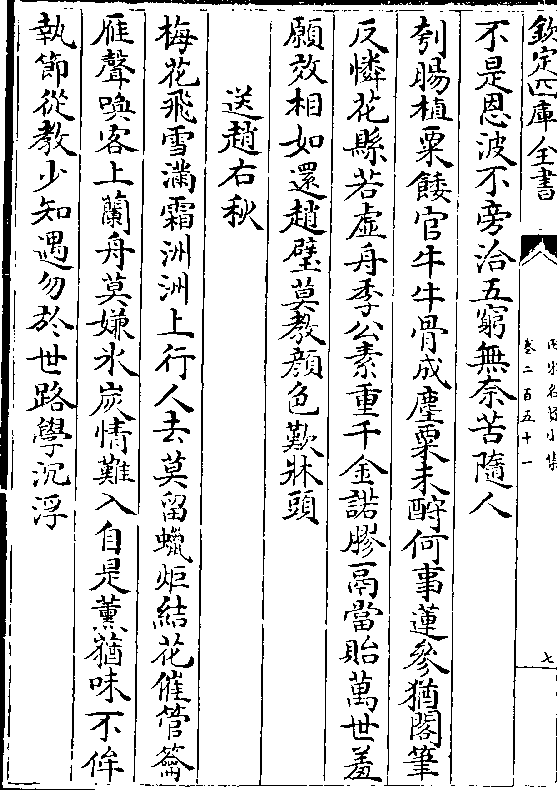 欽定四庫全書
卷二百五十一
七
不是恩波不旁洽五窮無奈苦隨人
刳腸植粟餧官牛牛骨成塵粟未酧何事蓮參猶閣筆
反憐花縣若虛舟季公素重千金諾膠鬲當貽萬世羞
願效相如還趙璧莫教顔色歎牀頭
送趙右秋
梅花飛雪滿霜洲洲上行人去莫留蠟炬結花催管籥
雁聲喚客上蘭舟莫嫌氷炭情難入自是薰蕕味不侔
執節從教少知遇勿於世路學沉浮